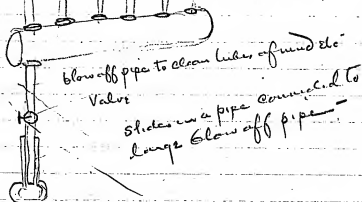 blow off pipe to clean tubes of mud etc
Valve
slides in a pipe connected to
large blow off pipe